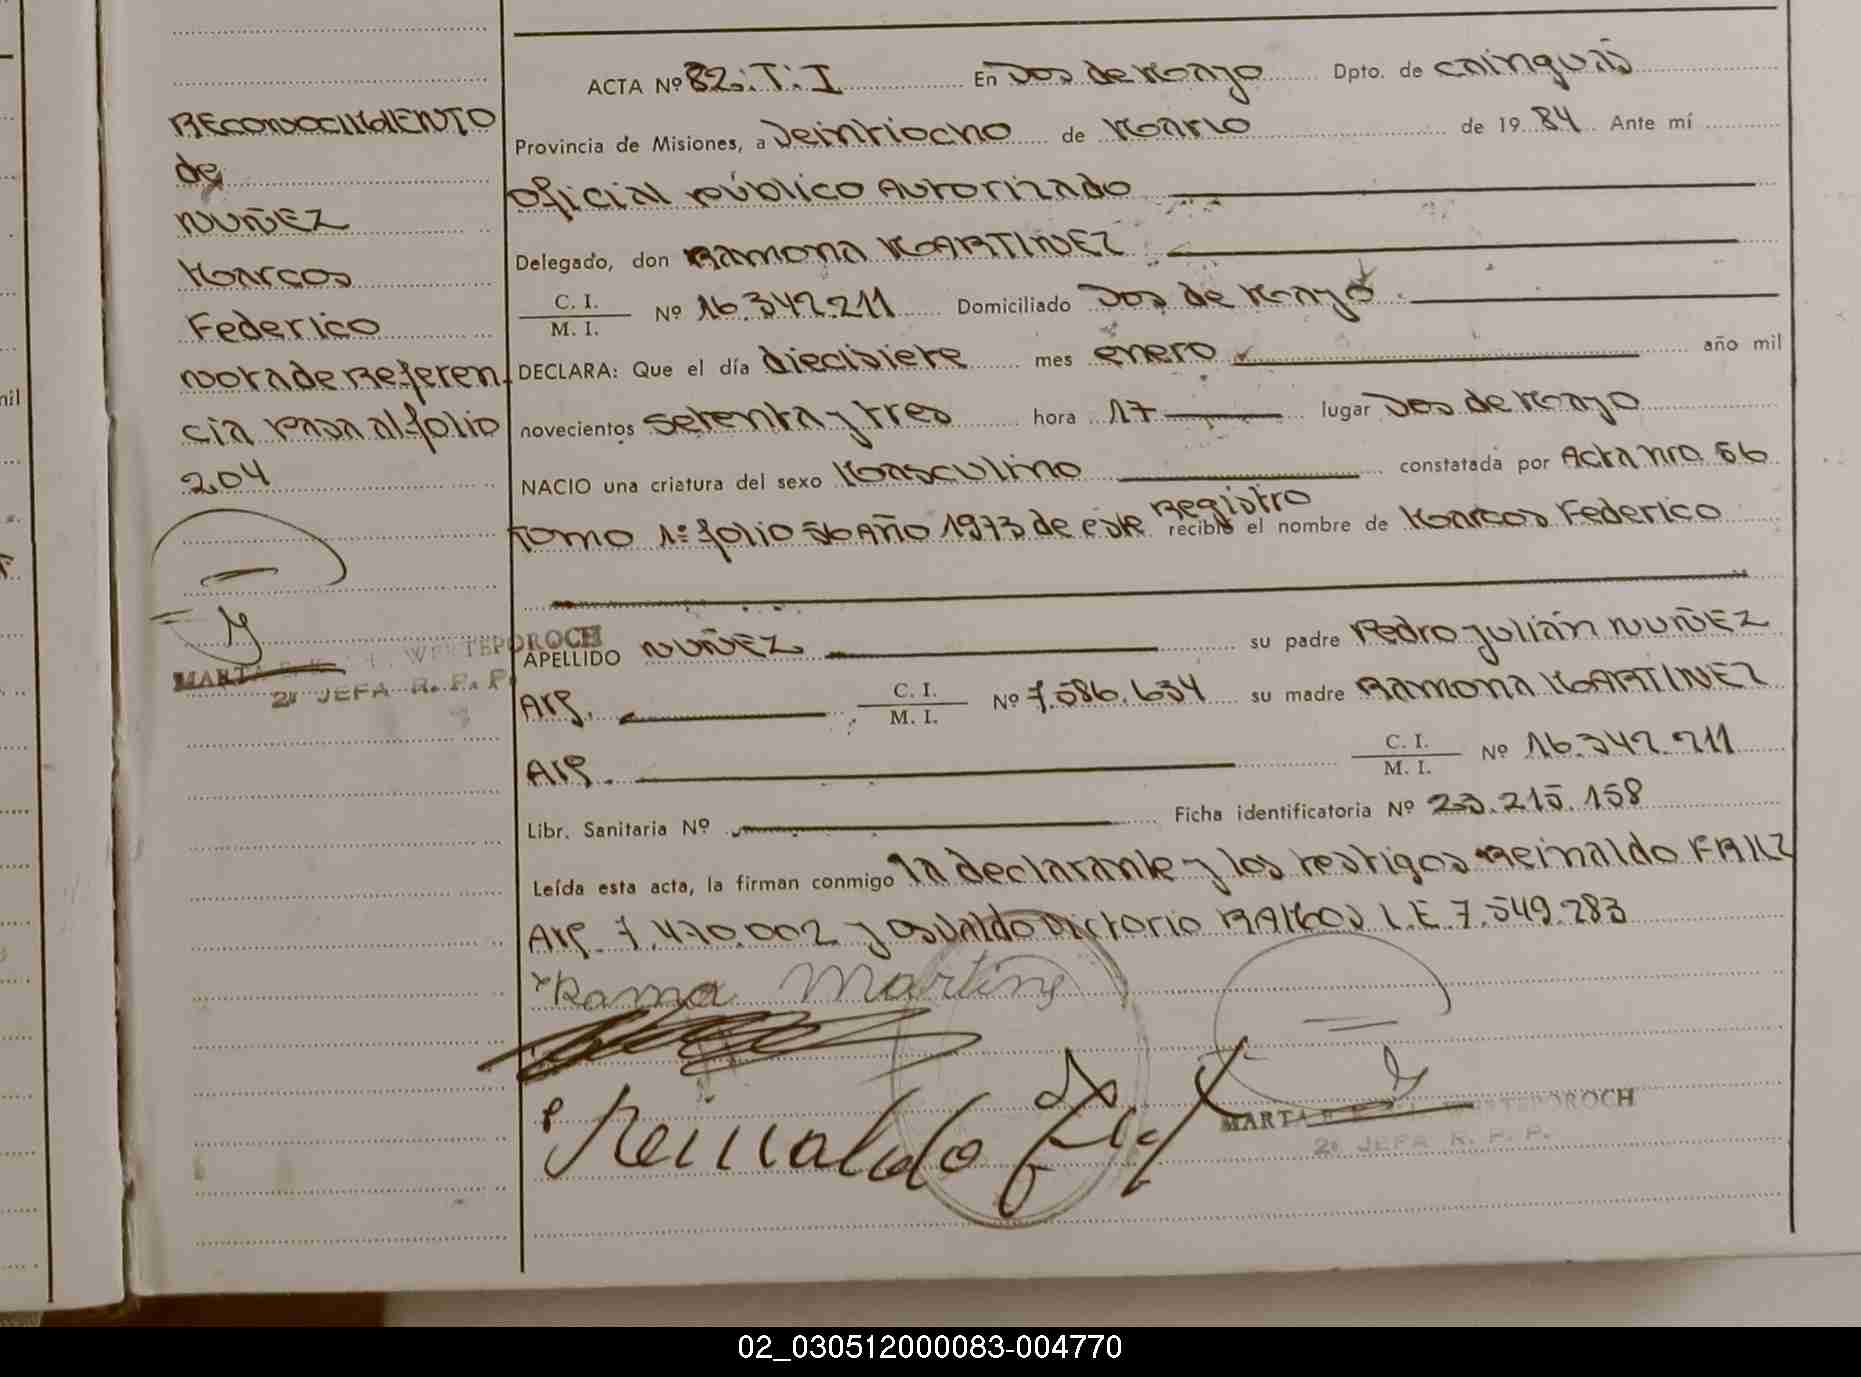 RECONOCIMIENTO
de
NUÑEZ
Marcos
Federico
Nota de Referen
cia pasa al folio
204
MARTA WESTEPOROCH
2ª JEFA R. P. P.
ACTA Nº 82.:T:I En Dos de Mayo Dpto. de Cainguás
Provincia de Misiones, a Veintiocho de Marzo de 1984 Ante mí
Oficial público Autorizado
Delegado, don RAMONA MARTINEZ
C. I.
M. I. Nº 16.342.211 Domiciliado Dos de Mayo
DECLARA: Que el día diecisiete mes enero año mil
novecientos Setenta y tres hora 17 lugar Dos de Mayo
NACIO una criatura del sexo Masculino constatada por Acta nro. 56
Tomo 1º folio 56 Año 1973 de este Registro recibió el nombre de Marcos Federico
APELLIDO NUÑEZ su padre Pedro Julián NUÑEZ
Arg. C. I.
M. I. Nº 7.586.634 su madre RAMONA MARTINEZ
Arg. C. I.
M. I. Nº 16.342.211
Libr. Sanitaria Nº Ficha identificatoria Nº 23.215.158
Leída esta acta, la firman conmigo la declarante y los testigos Reinaldo
Arg. 7.470.002 y Osvaldo Victorio RAMOS L.E. 7.549.283
Rama Martins
Reinaldo
MARTA WESTEPOROCH
2ª JEFA R. P. P.
02_030512000083-004770